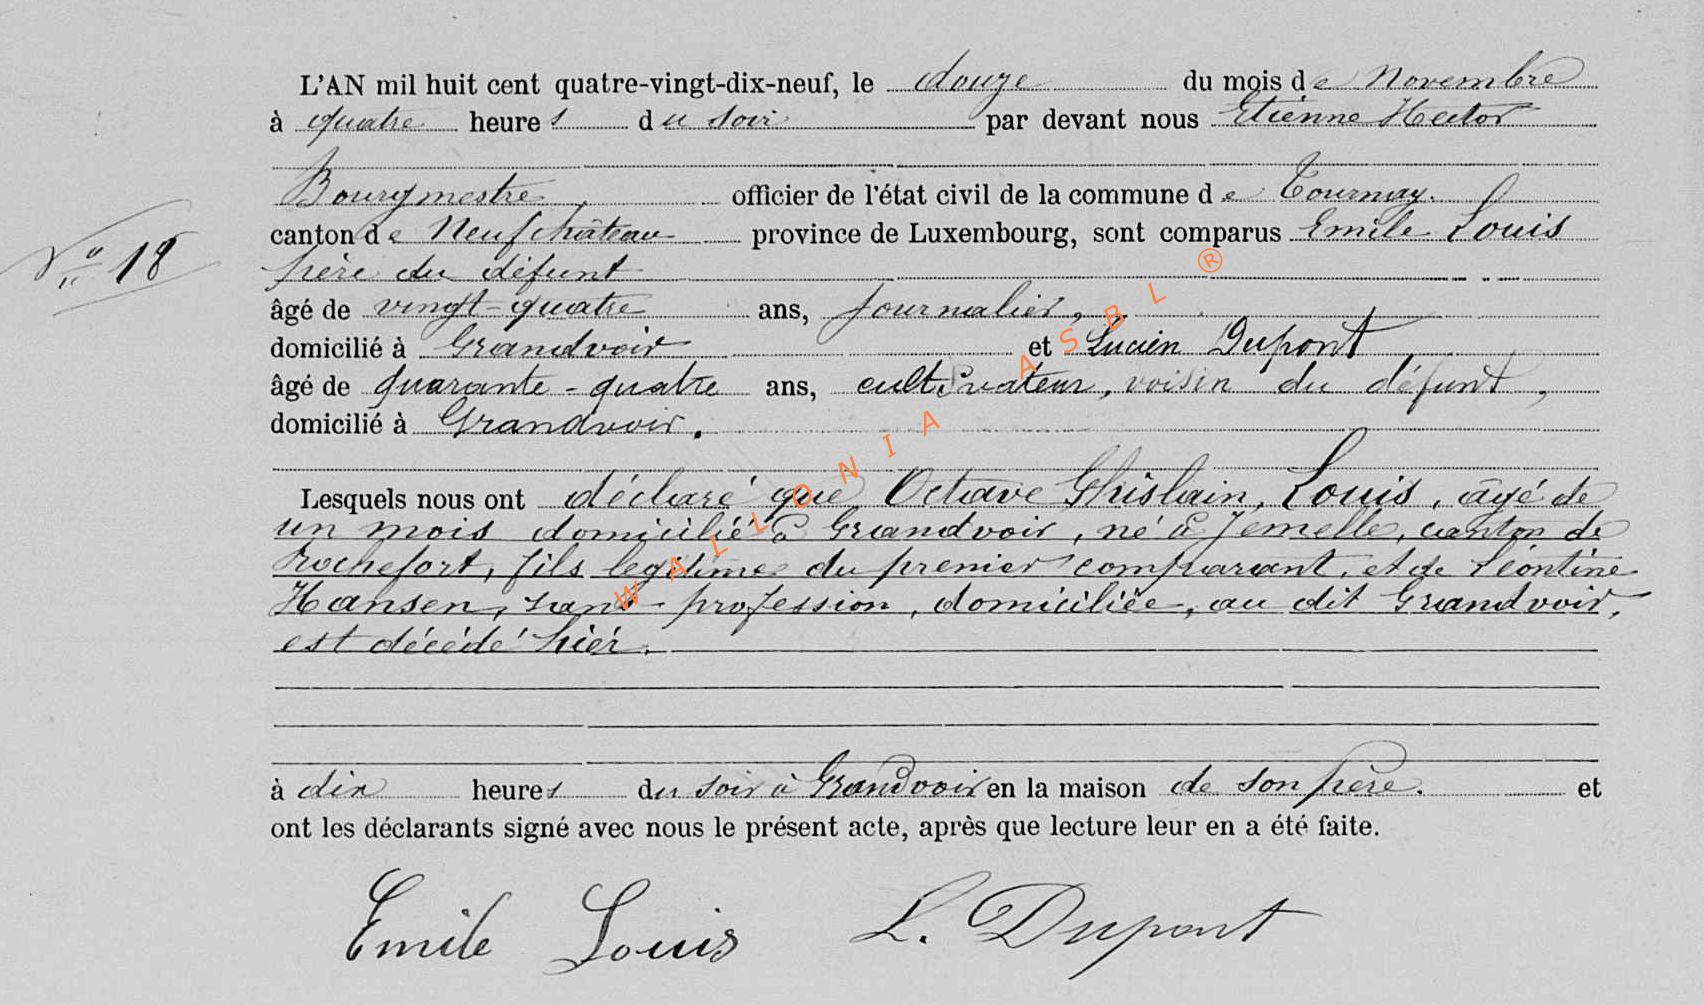 L'AN mil huit cent quatre-vingt-dix-neuf, le douze du mois de Novembre
à quatre heures du soir par devant nous Etienne Hector
Bourgmestre officier de l'état civil de la commune de Tournay.
canton de Neufchâteau province de Luxembourg, sont comparus Emile Louis
N° 18
père du défunt
âgé de vingt-quatre ans, journalier,
domicilié à Grandvoir et Lucien Dupont
âgé de quarante-quatre ans, cultivateur, voisin du défunt,
domicilié à Grandvoir.
Lesquels nous ont déclaré que Octave Ghislain, Louis, âgé de
un mois domicilié à Grandvoir, né à Jemelle, canton de
Rochefort, fils legitime du premier comparant, et de Léontine
Hansen, sans profession, domiciliée, au dit Grandvoir,
est décédé hier.
à dix heures du soir à Grandvoir en la maison de son père. et
ont les déclarants signé avec nous le présent acte, après que lecture leur en a été faite.
Emile Louis L. Dupont
WALLONIA ASBL ®